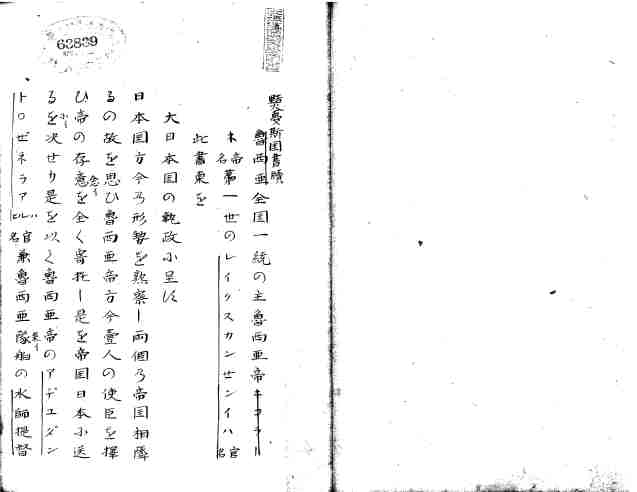 63839
魯西亜全国一統の主魯西亜帝ニコラー
帝名第一世のレイクスカンセンイハ官名
此書柬を
大日本国の執政に呈す
日本国方今の形勢を熟察し両個の帝国相隣
るの故を思ひ魯西亜帝方今壹人の使臣を擇
ひ帝の存意を全く寄托し是を帝国日本に送
るを决せり是を以て魯西亜帝のアデユダン
トロゼネラアル官名兼魯西亜豫船の水師提督